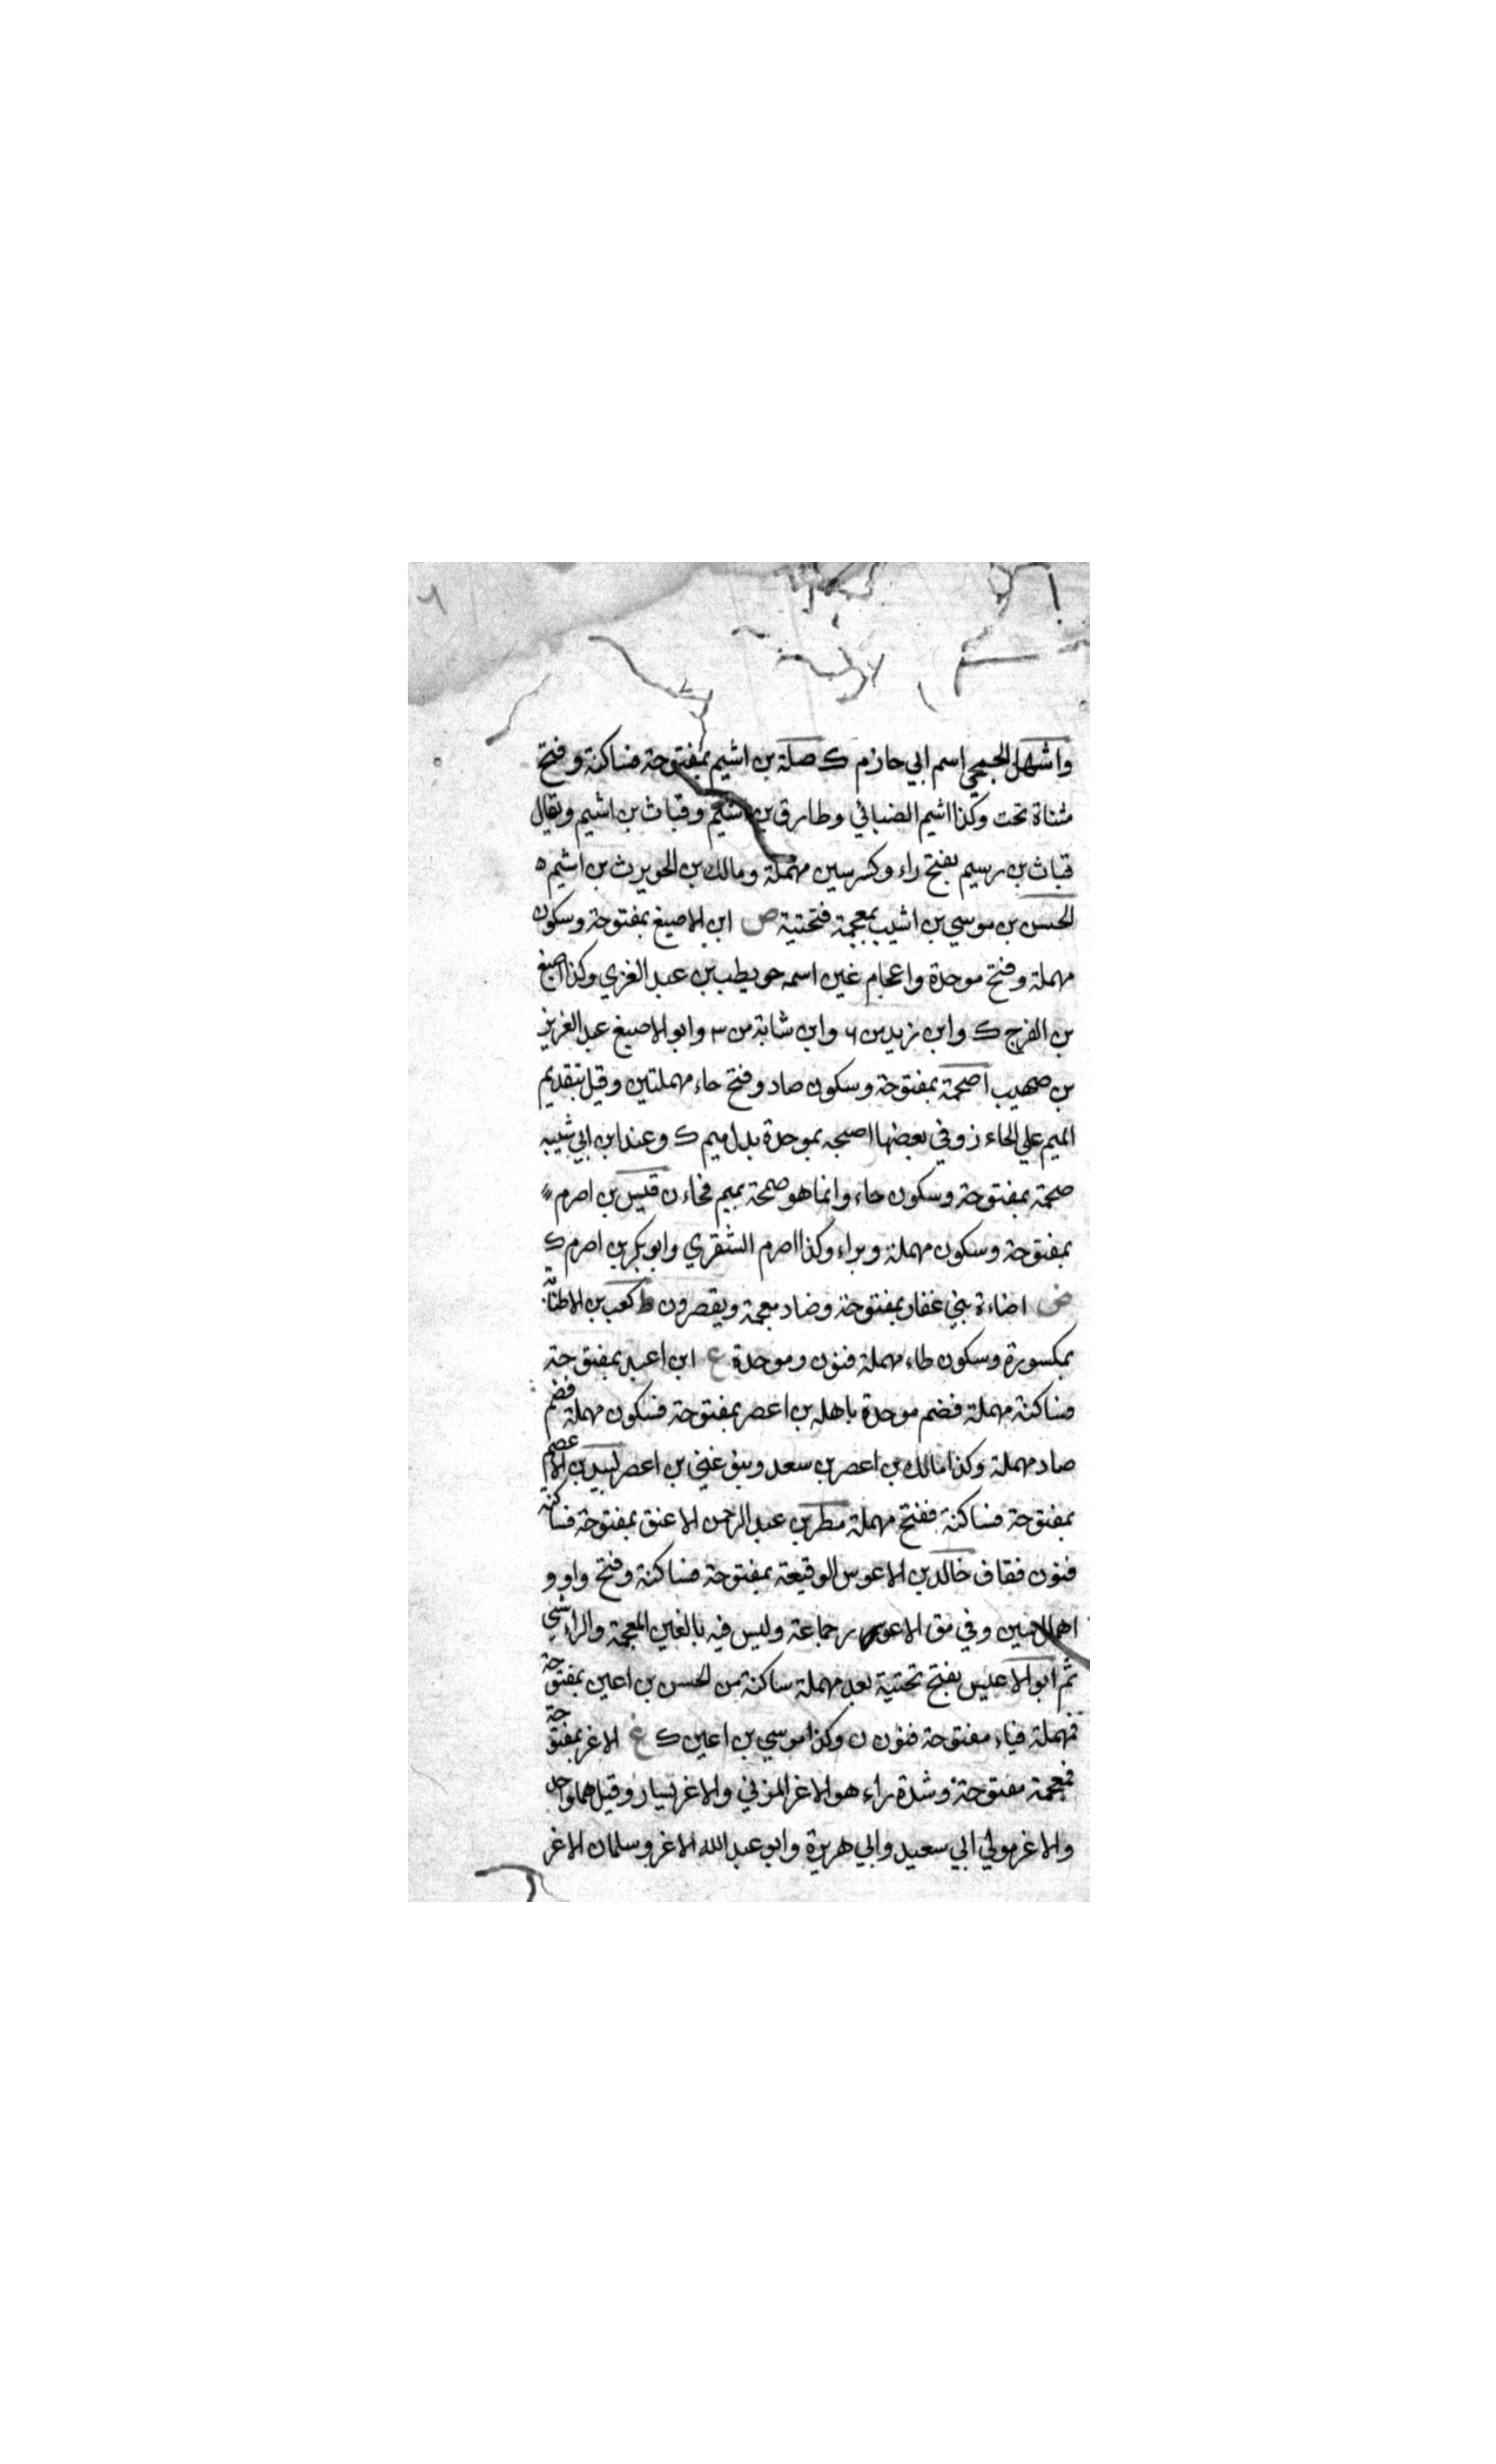 واشهل الجمحي اسم ابي حازم ك صلة بن اشيم بمفتوحة فساكنة وفتح
مثناة تحت وكذا اشيم الضبابي وطارق بن اشيم وقباث بن اشيم ويقال
قباث بن رسيم بفتح راء وكسر سين مهملة ومالك بن الحويرث بن اشيم ه
الحسن بن موسي بن اشيب بمعجمة فتحتية ص ابن الاصبغ بمفتوحة وسكون
مهملة وفتح موحدة واعجام غين اسمه حويطب بن عبد العزي وكذا اصبغ
بن الفرج ك وابن زيد من ٦ وابن شابة من ٣ وابو الاصبغ عبد العزيز
بن صهيب اصحمة بمفتوحة وسكون صاد وفتح حاء مهملتين وقيل بتقديم
الميم علي الحاء ز وفي بعضها اصبحه بموحدة بدل ميم ك وعند ابن ابي شيبه
صحمة بمفتوحة وسكون حاء وانما هو صمحة بميم فحاء ن قيس بن اصرم
بمفتوحة وسكون مهملة وبراء وكذا اصرم الشقري وابو بكر بن اصرم ك
ض اضاءة بني غفار بمفتوحة وضاد معجمة ويقصر ون ط كعب بن الاطنابة
بمكسورة وسكون طاء مهملة فنون وموحدة ع ابن اعبد بمفتوحة
فساكنة مهملة فضم موحدة باهله بن اعصر بمفتوحة فسكون مهملة فضم
صاد مهملة وكذا مالك بن اعصر بن سعد وبنو غني بن اعصر لبيد بن الاعصم
بمفتوحة فساكنة ففتح مهملة مطر بن عبد الرحمن الاعنق بمفتوحة فساكنة
فنون فقاف خالد بن الاعوس الوقيعة بمفتوحة فساكنة وفتح واو و
اهمال سين وفي مق الاعوس جماعة وليس فيه بالغين المعجمة والراء شي
ثم ابو الاعيس بفتح تحتية بعد مهملة ساكنة من الحسن بن اعين بمفتوحة
فمهملة فياء مفتوحة فنون ن وكذا موسي بن اعين ك غ الاغر بمفتوحة
فمعجمة مفتوحة وشدة راء هو الاغر المزني والاغر بن يسار وقيل هما واحد
والاغر مولي ابي سعيد وابي هريرة وابو عبد الله الاغر وسلمان الاغر